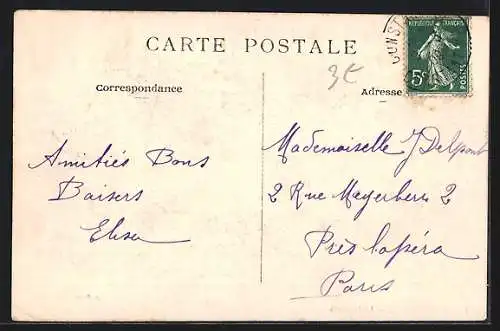 CARTE POSTALE
RÉPUBLIQUE FRANÇAISE
5c
POSTES
CONST
3€
Correspondance
Adresse
Amitiés Bons
Baisers
Elisa
Mademoiselle J Delpont
2 Rue Meyerbeer 2
Près l'opéra
Paris